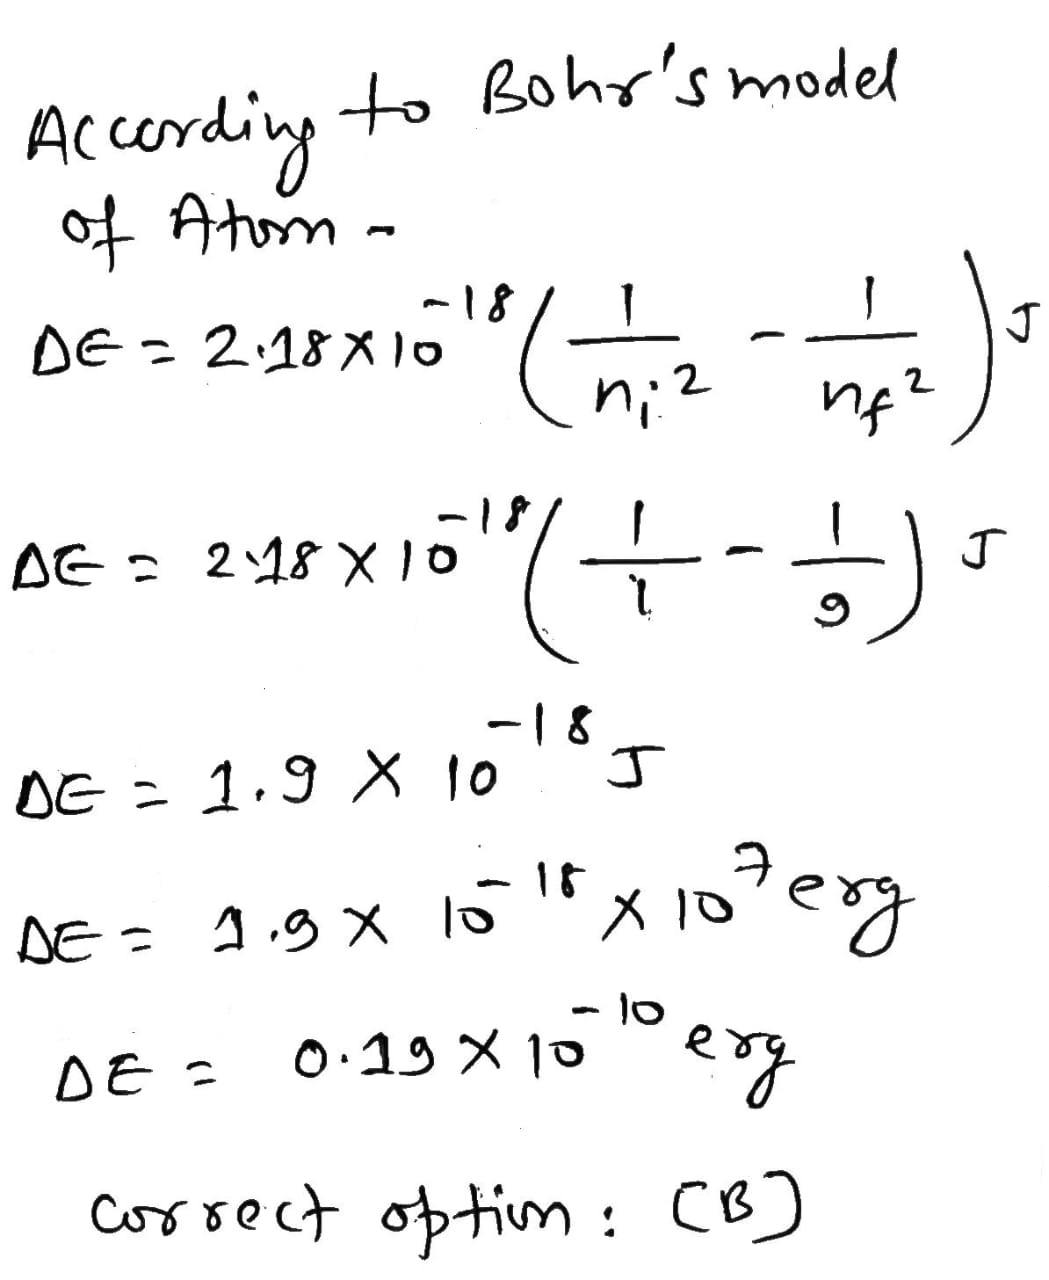 According to Bohr's model
of Atom -
ΔE = 2.18 × 10⁻¹⁸ (1/nᵢ² - 1/n_f²) J
ΔE = 2.18 × 10⁻¹⁸ (1/1 - 1/9) J
ΔE = 1.9 × 10⁻¹⁸ J
ΔE = 1.9 × 10⁻¹⁸ × 10⁷ erg
ΔE = 0.19 × 10⁻¹⁰ erg
correct option : (B)